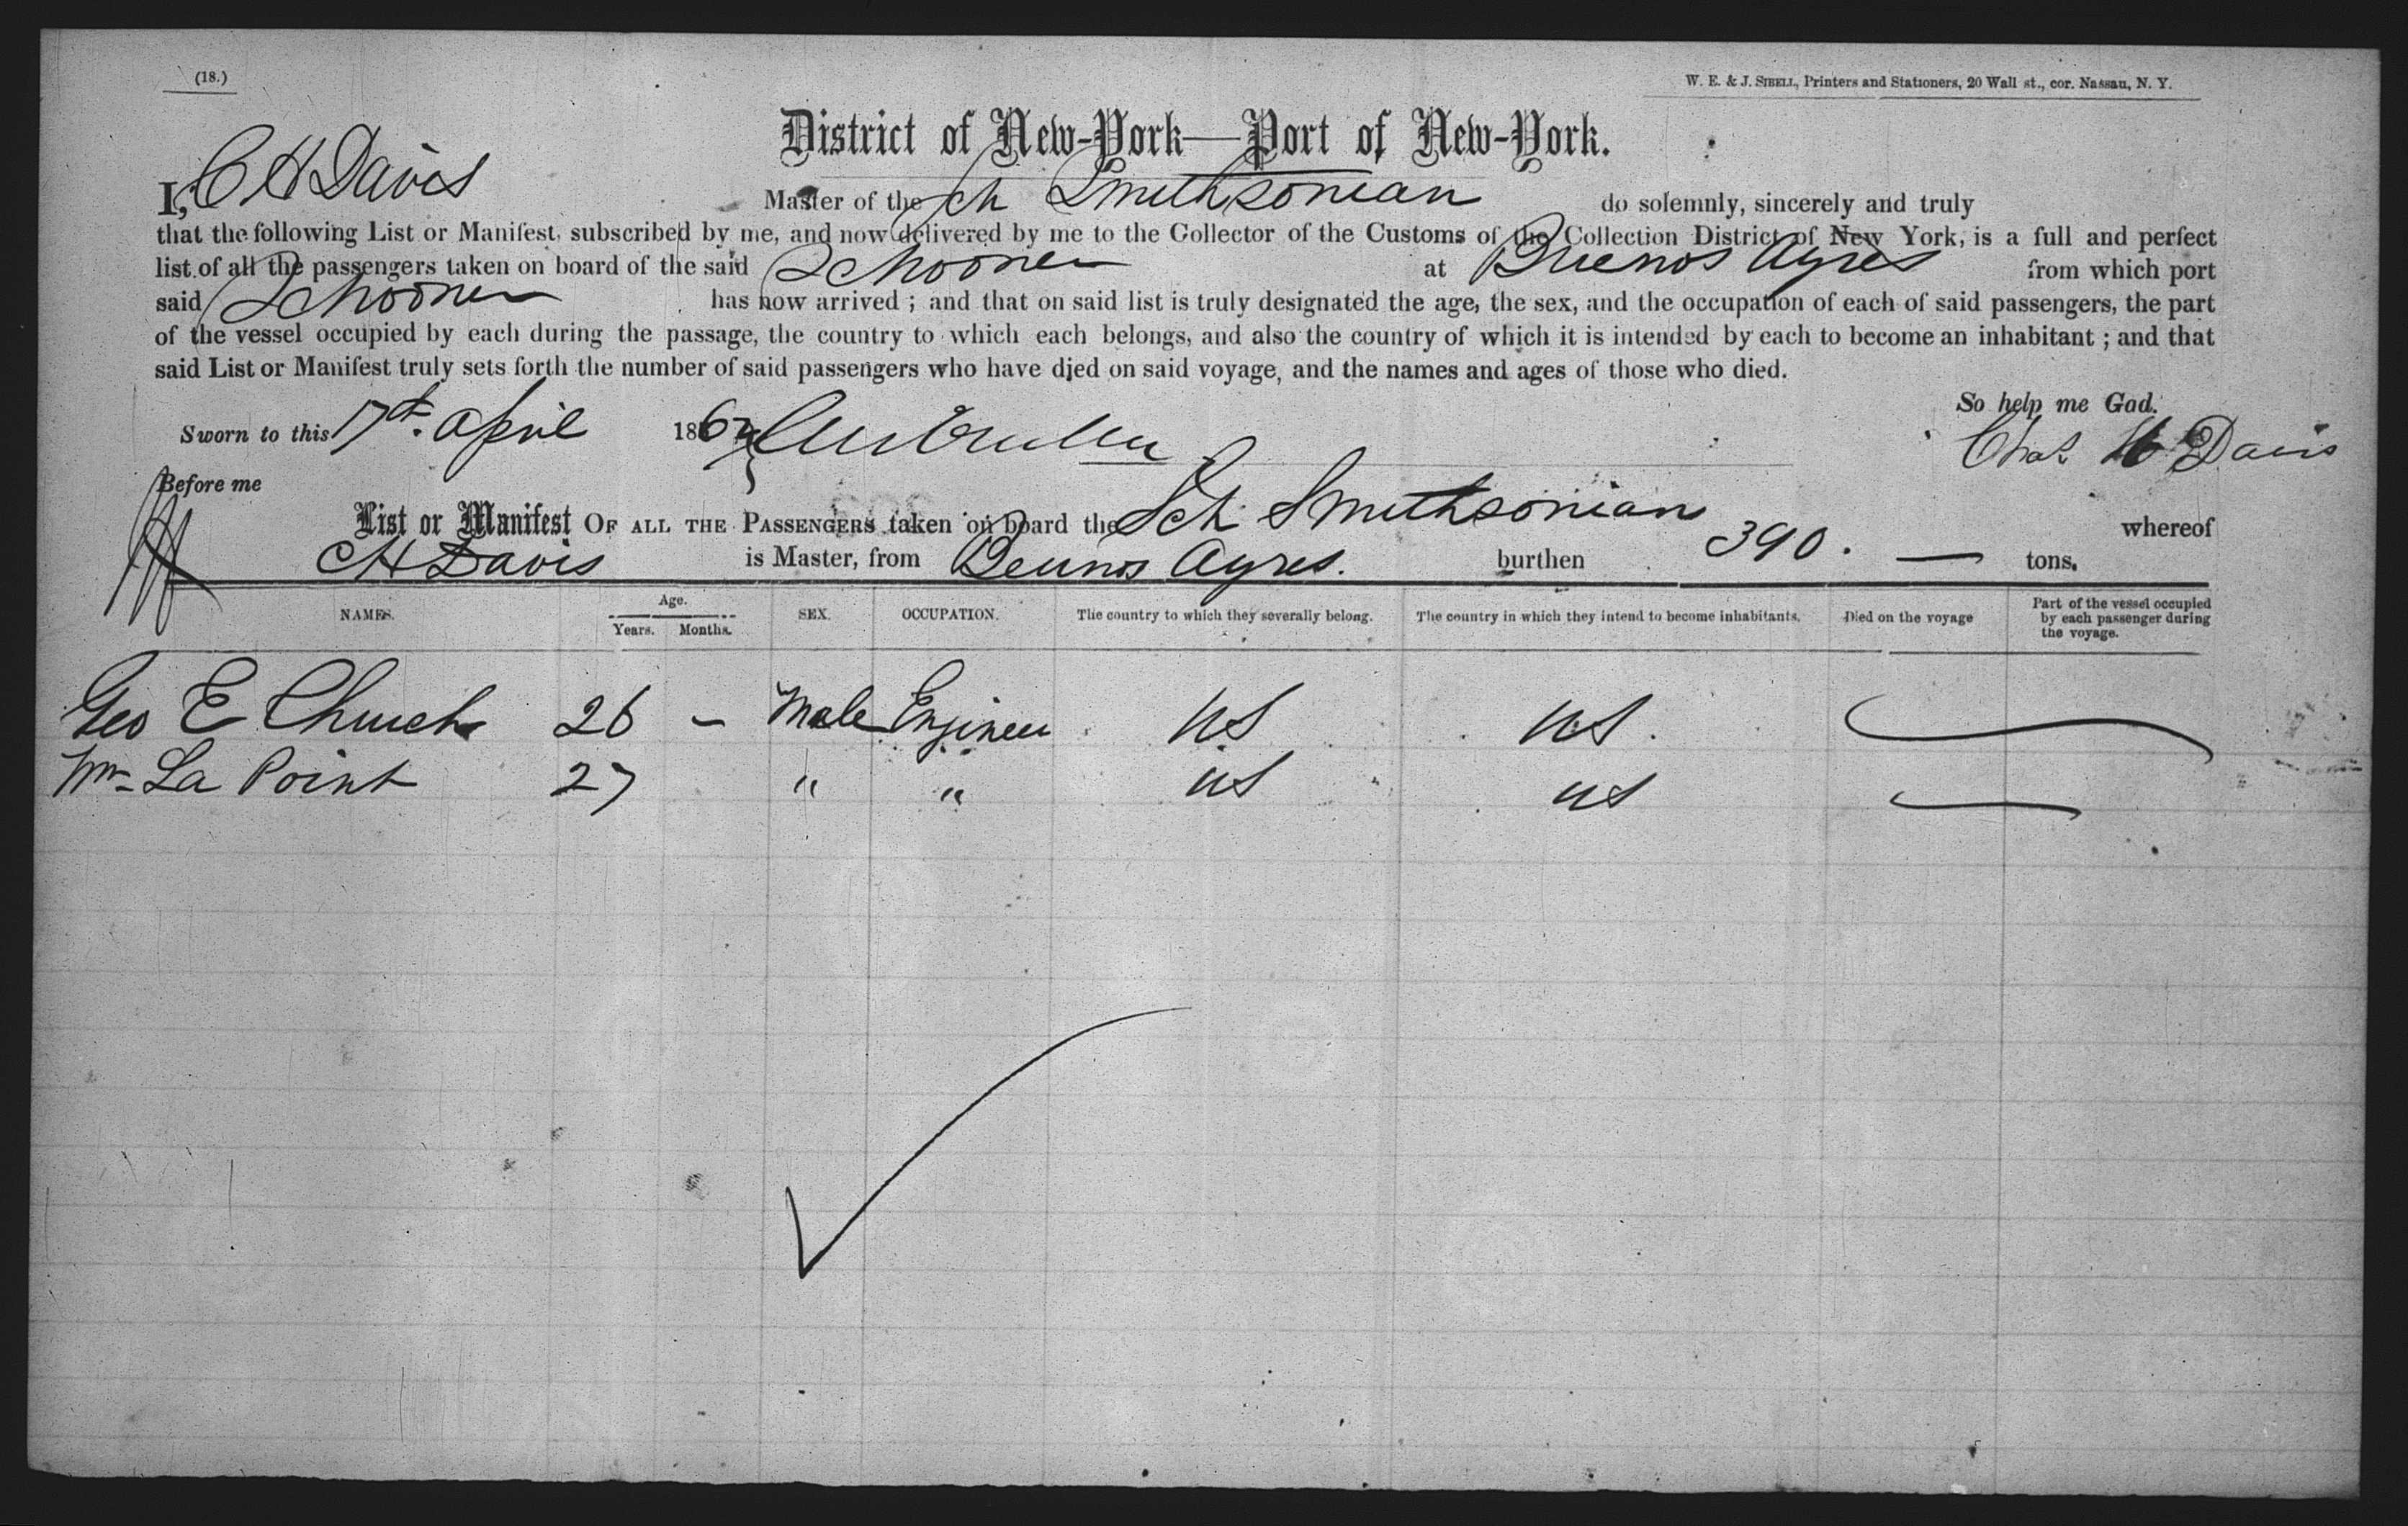 (18.)
W. E. & J. SIBELL, Printers and Stationers, 20 Wall st., cor. Nassau, N. Y.
District of New-York—Port of New-York.
I, C H Davis Master of the Sch Smithsonian do solemnly, sincerely and truly
that the following List or Manifest, subscribed by me, and now delivered by me to the Collector of the Customs of the Collection District of New York, is a full and perfect
list of all the passengers taken on board of the said Schooner at Buenos Ayres from which port
said Schooner has now arrived ; and that on said list is truly designated the age, the sex, and the occupation of each of said passengers, the part
of the vessel occupied by each during the passage, the country to which each belongs, and also the country of which it is intended by each to become an inhabitant ; and that
said List or Manifest truly sets forth the number of said passengers who have died on said voyage, and the names and ages of those who died.
So help me God.
Sworn to this 17th April 186 Chas H Davis
Before me
List or Manifest OF ALL THE PASSENGERS taken on board the Sch Smithsonian whereof
C H Davis is Master, from Beunos Ayres. burthen 390. — tons.
NAMES. Age. Years. Months. SEX. OCCUPATION. The country to which they severally belong. The country in which they intend to become inhabitants. Died on the voyage Part of the vessel occupied by each passenger during the voyage.
Geo E Church 26 – Male Engineer US US.
Wm La Point 27 " " US US